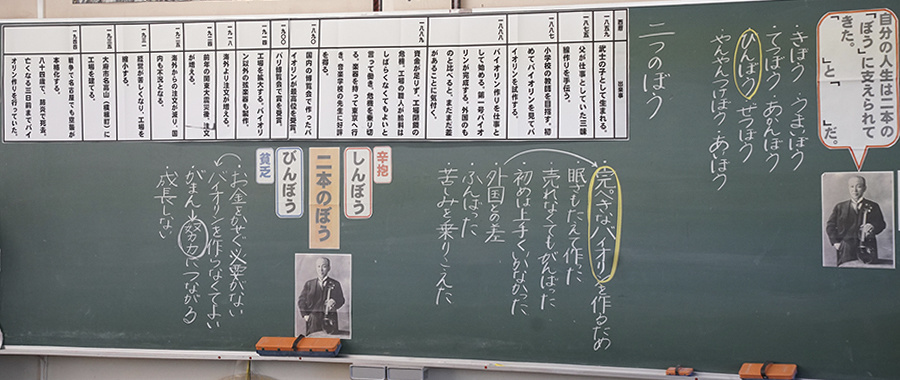 自分の人生は二本の
「ぼう」に支えられて
きた。
「　　」と「　　」だ。
・きぼう　・うまいぼう
・てつぼう・あかんぼう
・びんぼう・ぜつぼう
・やんやんつけぼう・あほう
二つのぼう
西暦　出来事
武士の子として生まれる。
一八七八　父が仕事としていた三味
線作りを手伝う。
一八八七　小学校の教師を目指す。初
めてバイオリンを見てバ
イオリンを試作する。
一八八八　バイオリン作りを仕事と
して始める。第一号バイオ
リンが完成する。外国のも
のと比べると、まだまだ差
があることに気付く。
一八八九　資金が足りず、工場閉鎖の
危機。工場の職人が給料は
しばらくなくてもよいと
言って働き、危機を乗り切
る。楽器を持って東京へ行
き、音楽学校の先生に好評
を得る。
一九〇〇　国内の博覧会で作ったバ
イオリンが最高位を受賞。
パリ博覧会で銅賞を受賞。
工場を拡大する。バイオリ
ン以外の弦楽器も製作。
海外より注文が増える。
前年の関東大震災後、注文
が増える。
海外からの注文が減り、国
内も不況となる。
経営が苦しくなり、工場を
縮小する。
工場を建てる。
戦争で名古屋でも空襲が
本格化する。
八十四歳で、腸炎で死去。
亡くなる三日前までバイ
オリン作りを行っていた。
・完ぺきなバイオリンを作るため
・眠さもたえて作った
・売れなくてもがんばった
・初めは上手くいかなかった
・外国との差
・ふんばった
・苦しみを乗りこえた
辛抱
しんぼう
二本のぼう
びんぼう
貧乏
・お金をかせぐ必要がない
・バイオリンを作らなくてよい
・がまん→努力につながる
・成長しない